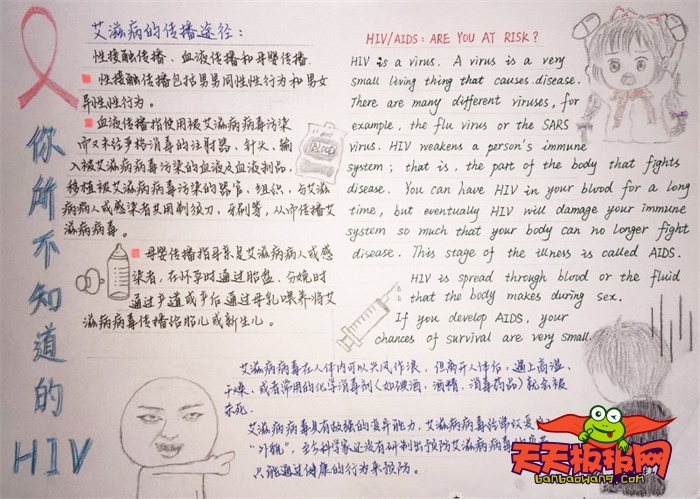 你所不知道的HIV
艾滋病的传播途径：
性接触传播、血液传播和母婴传播.
性接触传播包括男男同性性行为和男女
异性性行为。
血液传播指使用被艾滋病病毒污染
而又未经严格消毒的注射器、针头、输
入被艾滋病病毒污染的血液及血液制品,
移植被艾滋病病毒污染的器官、组织，与艾滋
病病人或感染者共用剃须刀、牙刷等，从而传播艾
滋病病毒。
母婴传播指母亲是艾滋病病人或感
染者，在怀孕时通过胎盘、分娩时
通过产道或产后通过母乳喂养将艾
滋病病毒传播给胎儿或新生儿。
BLOOD
HIV/AIDS: ARE YOU AT RISK?
HIV is a virus. A virus is a very
small living thing that causes disease.
There are many different viruses, for
example, the flu virus or the SARS
virus. HIV weakens a person's immune
system; that is, the part of the body that fights
disease. You can have HIV in your blood for a long
time, but eventually HIV will damage your immune
system so much that your body can no longer fight
disease. This stage of the illness is called AIDS.
HIV is spread through blood or the fluid
that the body makes during sex.
If you develop AIDS, your
chances of survival are very small.
艾滋病病毒在人体内可以兴风作浪，但离开人体后，遇上高温、
干燥、或者常用的化学消毒剂（如碘酒、酒精、消毒药品）就会被
杀死.
艾滋病病毒具有极强的变异能力，艾滋病病毒经常改变
“外貌”，至今科学家还没有研制出预防艾滋病病毒的
只能通过健康的行为来预防。
天天板报网
banbaowang.com